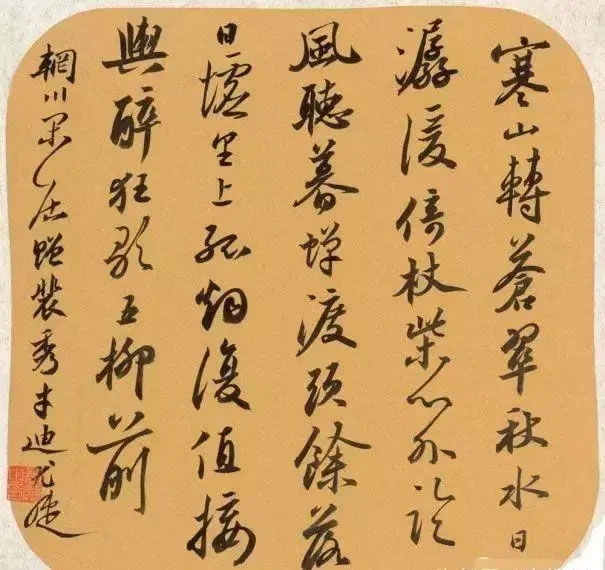 寒山轉蒼翠秋水日
潺湲倚杖柴門外臨
風聽暮蟬渡頭餘落
日墟里上孤烟復值接
輿醉狂歌五柳前
輞川閑居贈裴秀才迪 尤